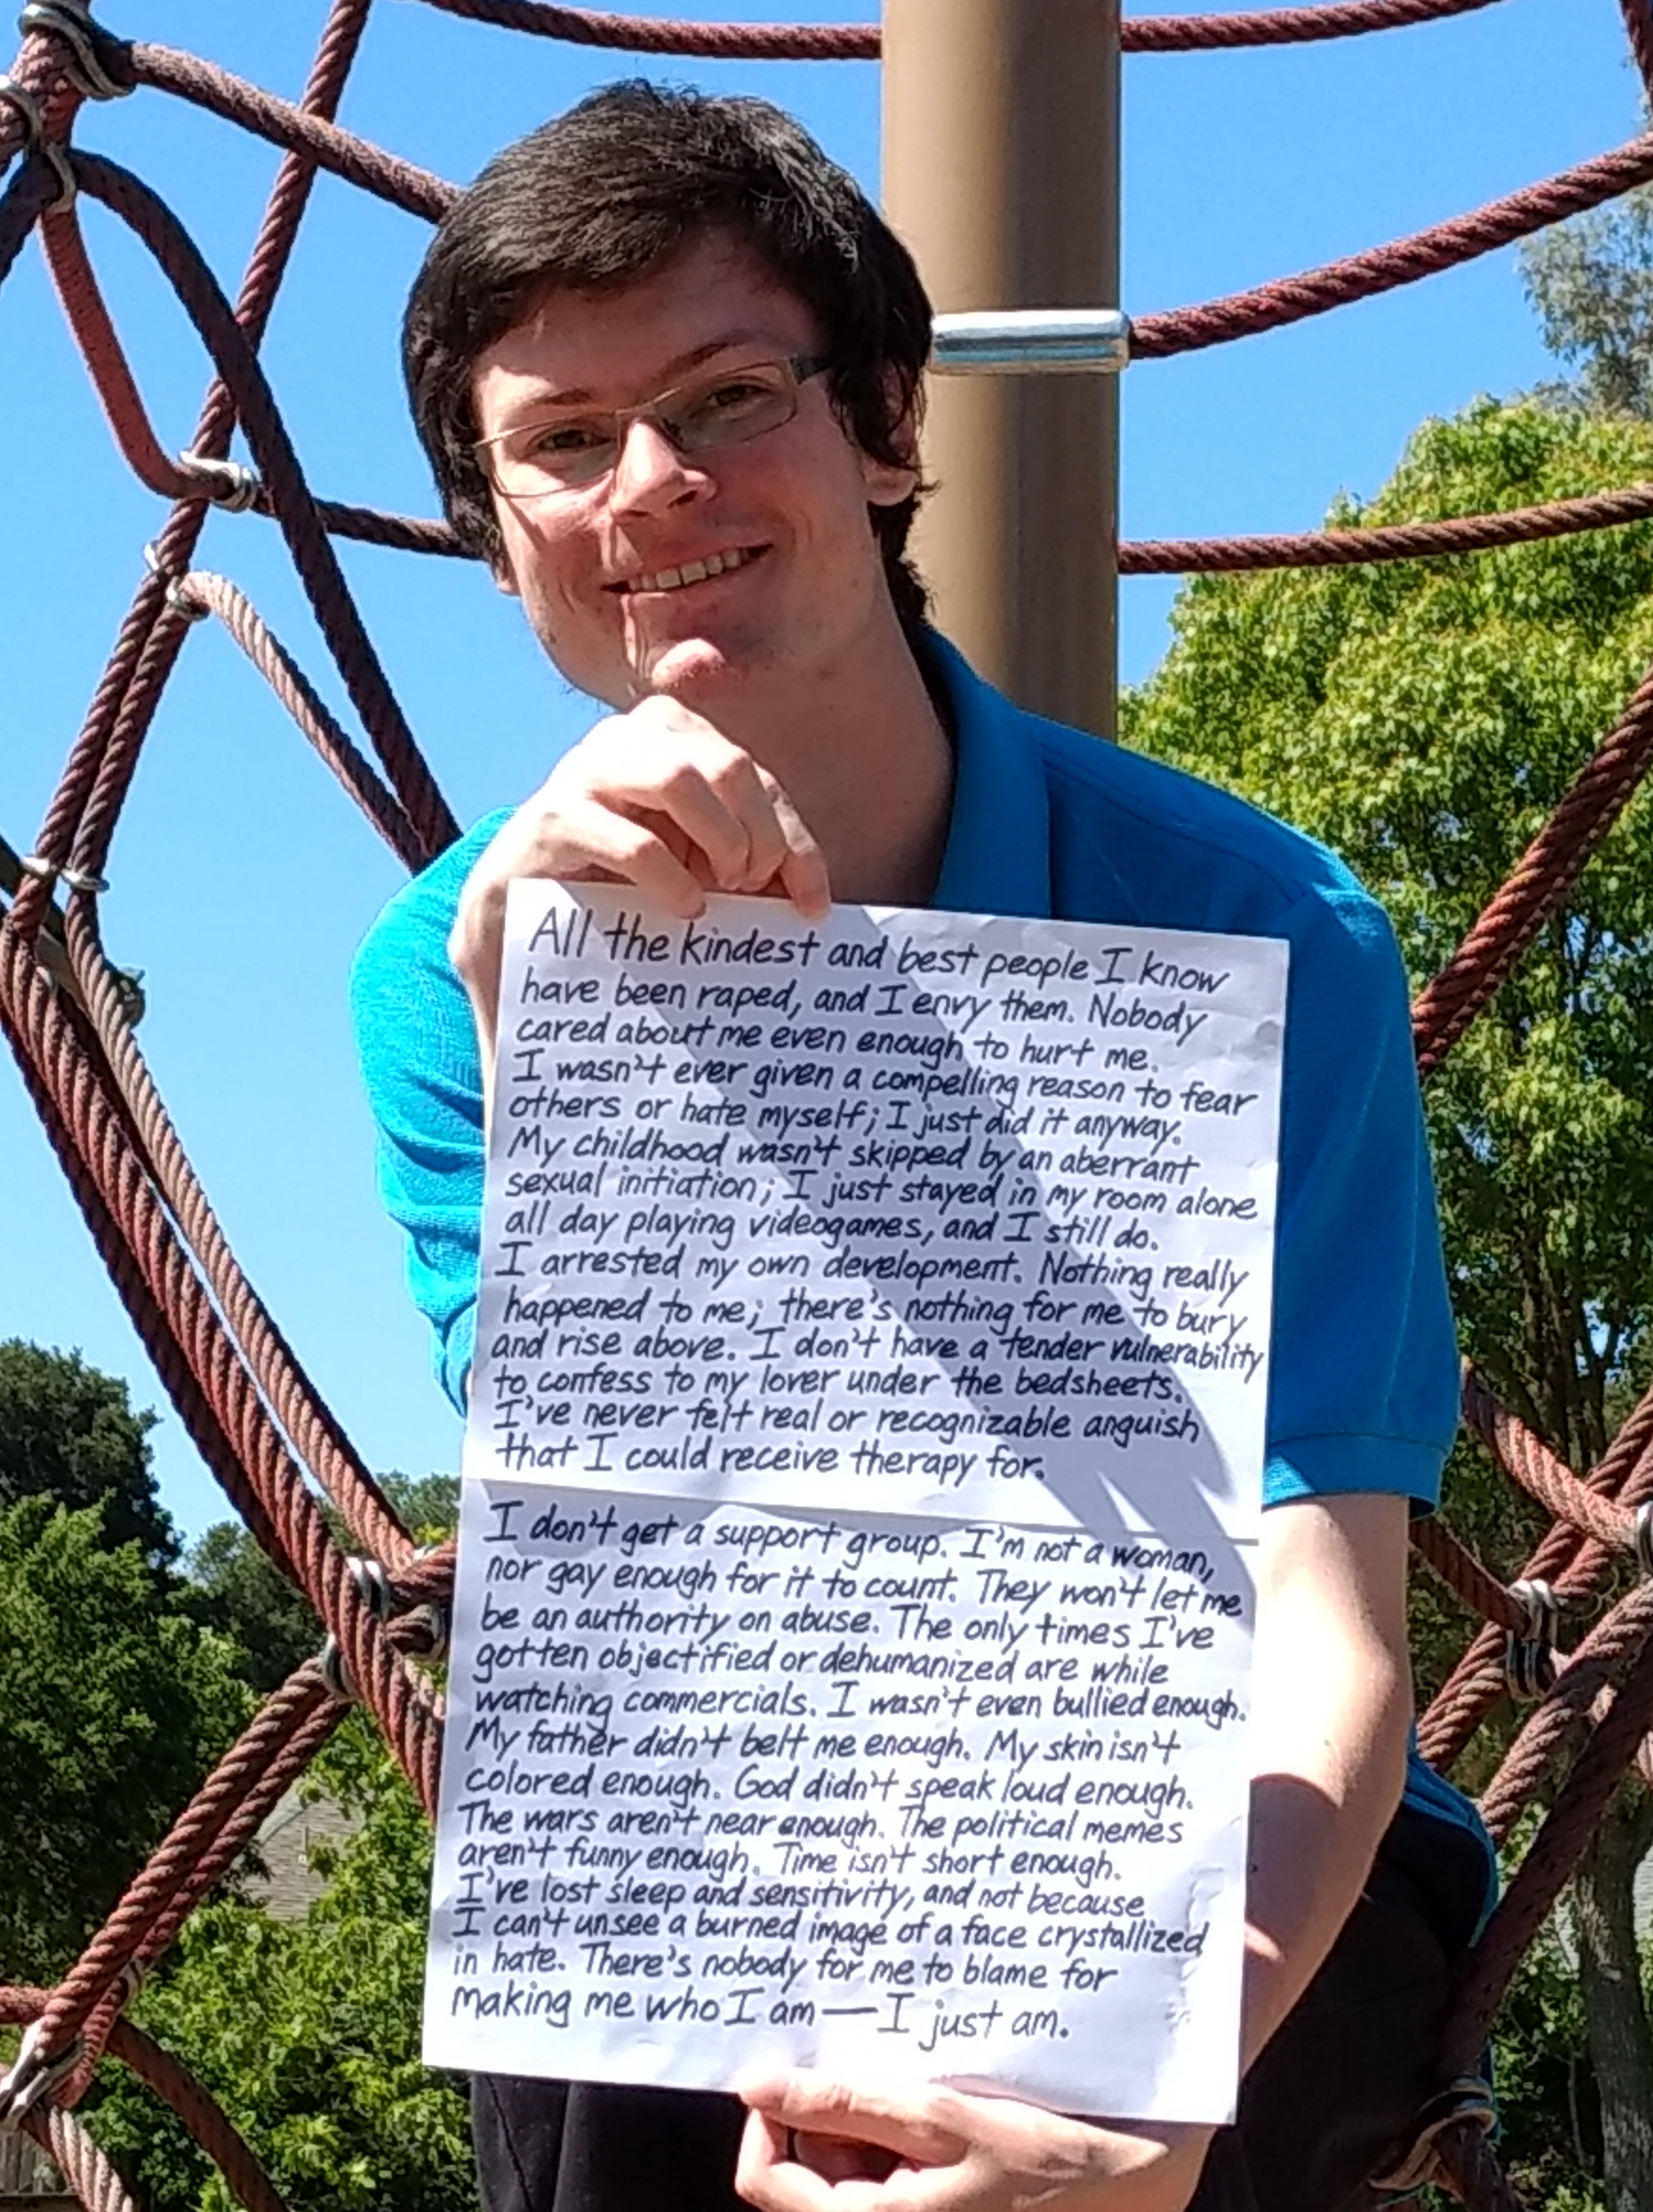 All the kindest and best people I know
have been raped, and I envy them. Nobody
cared about me even enough to hurt me.
I wasn't ever given a compelling reason to fear
others or hate myself; I just did it anyway.
My childhood wasn't skipped by an aberrant
sexual initiation; I just stayed in my room alone
all day playing videogames, and I still do.
I arrested my own development. Nothing really
happened to me; there's nothing for me to bury
and rise above. I don't have a tender vulnerability
to confess to my lover under the bedsheets.
I've never felt real or recognizable anguish
that I could receive therapy for.
I don't get a support group. I'm not a woman,
nor gay enough for it to count. They won't let me
be an authority on abuse. The only times I've
gotten objectified or dehumanized are while
watching commercials. I wasn't even bullied enough.
My father didn't belt me enough. My skin isn't
colored enough. God didn't speak loud enough.
The wars aren't near enough. The political memes
aren't funny enough. Time isn't short enough.
I've lost sleep and sensitivity, and not because
I can't unsee a burned image of a face crystallized
in hate. There's nobody for me to blame for
making me who I am — I just am.